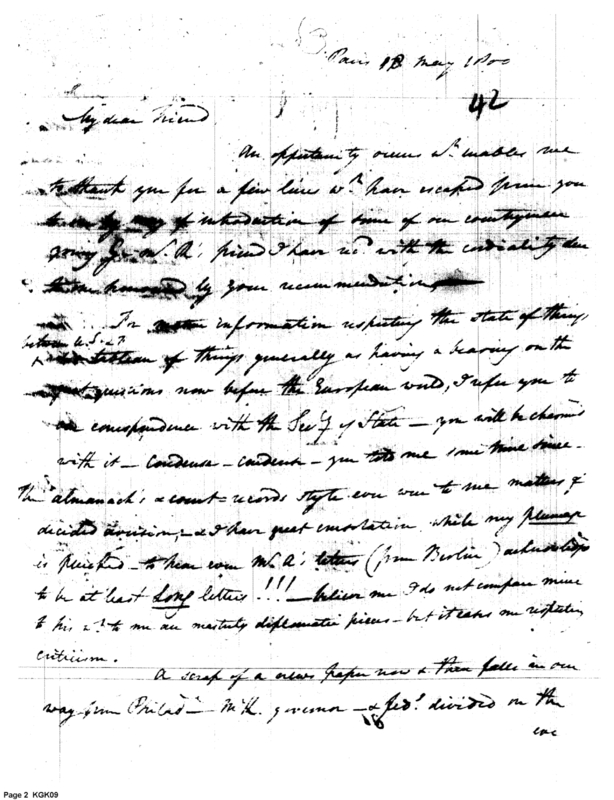 Paris 18 May 1800
42
My dear Friend
An opportunity occurs wh. enables me
to thank you for a few lines wh. have escaped from you
to me by way of introduction of some of our countrymen
going friend I have recd. with the cordiality due
to one honoured by your recommendation
For information respecting the state of things
between U.S. &
tableau of things generally as having a bearing on the
great questions now before the European world, I refer you to
our correspondence with the Secy of State — you will be charmed
with it — condense — condense — you told me some time since —
The almanach's & count records style even were to me matters of
decided aversion, — & I have great consolation, while my plumage
is plucked — to hear even Mr. A's letters (from Berlin) acknowledged
to be at least long letters !!! — believe me I do not compare mine
to his wh. to me are masterly diplomatic pieces — but it eases me respecting
criticism.
A scrap of a news paper now & then falls in our
way from Philada — McK. governor — & Fedl. divided on the
18
eve
Page 2 KGK09